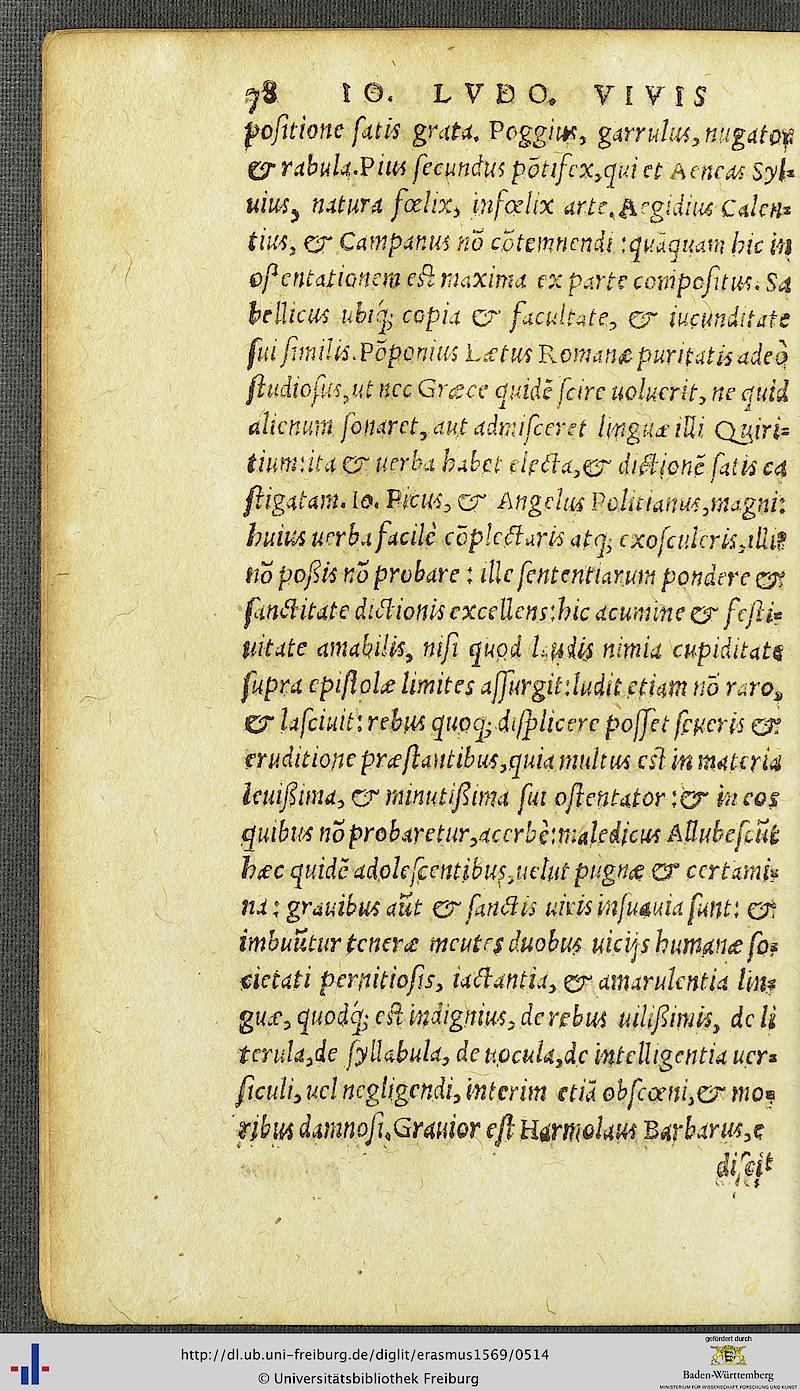 78 IO. LVDO. VIVIS
poſitione ſatis grata. Poggius, garrulus, nugator
& rabula. Pius ſecundus põtifex, qui et Aeneas Syl-
uius, natura fœlix, infœlix arte. Aegidius Calen-
tius, & Campanus nõ cõtemnendi: quãquam hic in
oſtentationem eſt maxima ex parte compoſitus. Sa
bellicus ubiq́; copia & facultate, & iucunditate
ſui ſimilis. Põponius Lætus Romanæ puritatis adeò
ſtudioſus, ut nec Græce quidẽ ſcire uoluerit, ne quid
alienum ſonaret, aut admiſceret linguæ illi Quiri-
tium: ita & uerba habet electa, & dictionẽ ſatis ca
ſtigatam. Io. Picus, & Angelus Politianus, magni:
huius uerba facilè cõplectaris atq; exoſculeris, illiꝰ
nõ poßis nõ probare: ille ſententiarum pondere &
ſanctitate dictionis excellens: hic acumine & feſti-
uitate amabilis, niſi quod laudis nimia cupiditate
ſupra epiſtolæ limites aſſurgit: ludit etiam nõ raro,
& laſciuit: rebus quoq; diſplicere poſſet ſeueris &
eruditione præſtantibus, quia multus eſt in materia
leuißima, & minutißima ſui oſtentator: & in eos
quibus nõ probaretur, acerbè: maledicus Allubeſcũt
hæc quidẽ adoleſcentibus, uelut pugnæ & certami-
na: grauibus aũt & ſanctis uiris inſuauia ſunt: &
imbuũtur teneræ mentes duobus uicijs humanæ ſo-
cietati pernitioſis, iactantia, & amarulentia lin-
guæ, quodq́; eſt indignius, de rebus uilißimis, de li
terula, de ſyllabula, de uocula, de intelligentia uer-
ſiculi, uel negligendi, interim etiã obſcœni, & mo-
ribus damnoſi. Grauior eſt Harmolaus Barbarus, e
diſcit
http://dl.ub.uni-freiburg.de/diglit/erasmus1569/0514
© Universitätsbibliothek Freiburg
gefördert durch
Baden-Württemberg
MINISTERIUM FÜR WISSENSCHAFT, FORSCHUNG UND KUNST